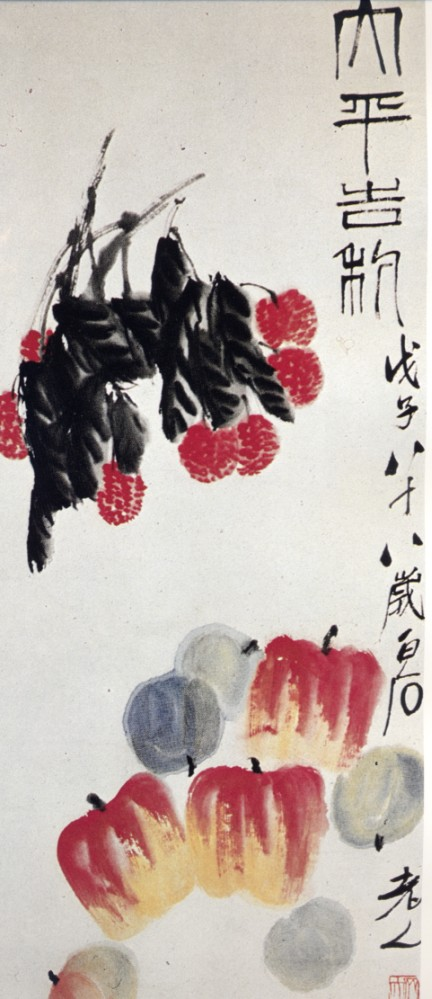 大平吉利
戊子八十八歲白石老人